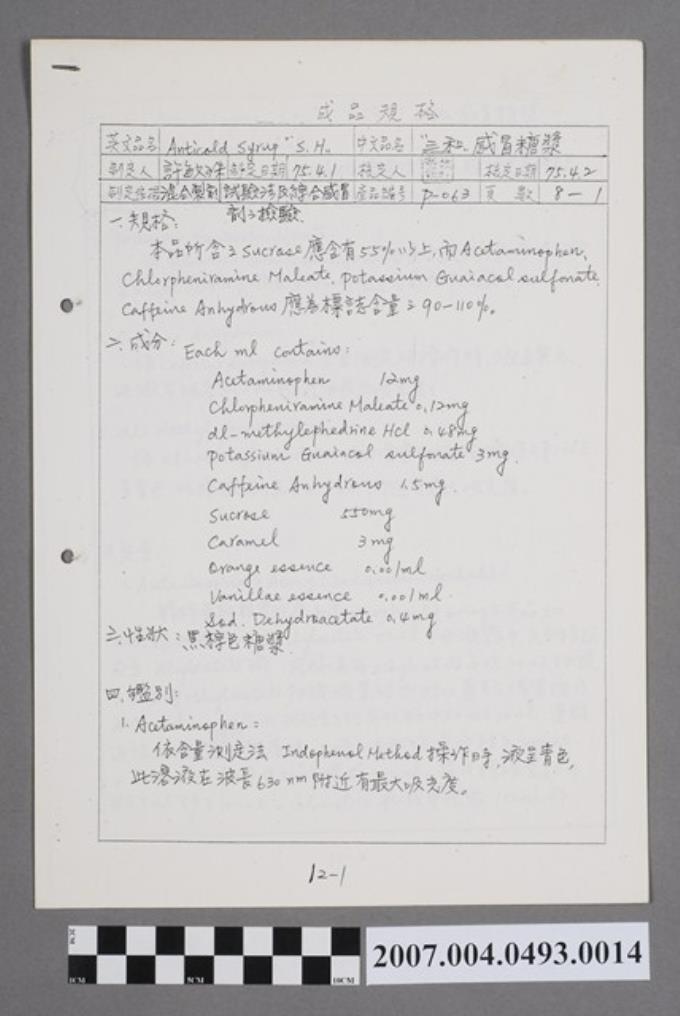 成品規格
英文品名 Anticold Syrup "S.H. 中文品名 "三和"感冒糖漿
制定人 制定日期 75.4.1 核定人 核定日期 75.4.2
制定依據 混合製劑試驗法及綜合感冒劑之檢驗 產品編號 P-063 頁數 8-1
一、規格:
本品所含之 Sucrose 應含有55%以上,而 Acetaminophen,
Chlorpheniramine Maleate, Potassium Guaiacol sulfonate,
Caffeine Anhydrous 應為標誌含量之90-110%。
二、成分: Each ml contains:
Acetaminophen 12mg
Chlorpheniramine Maleate 0.12mg
dl-methylephedrine HCl 0.48mg
Potassium Guaiacol sulfonate 3mg.
Caffeine Anhydrous 1.5mg.
Sucrose 550mg
Caramel 3mg
Orange essence 0.001ml
Vanillae essence 0.001ml.
Sod. Dehydroacetate 0.4mg
三、性狀: 黑棕色糖漿.
四、鑑別:
1. Acetaminophen:
依含量測定法 Indophenol Method 操作時,液呈青色,
此溶液在波長630nm附近有最大吸光度。
12-1
1CM 5CM 10CM
2007.004.0493.0014